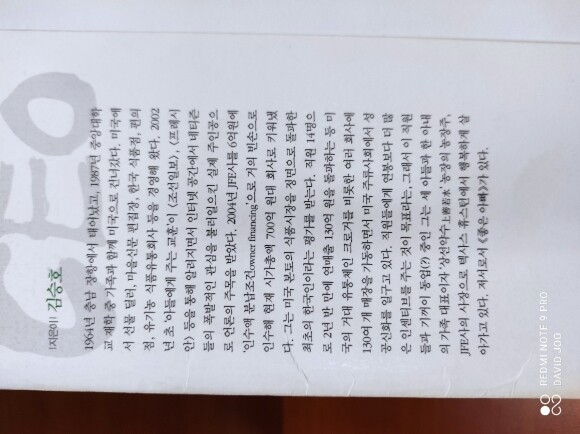 CEO
|지은이| 김승호
1964년 충남 장항에서 태어났고, 1987년 중앙대학
교 재학 중 가족과 함께 미국으로 건너갔다. 미국에
서 선물 딜러, 마을신문 편집장, 한국 식품점, 편의
점, 유기농 식품유통회사 등을 경영해 왔다. 2002
년 초 '아들에게 주는 교훈'이 〈조선일보〉, 〈프레시
안〉 등을 통해 알려지면서 인터넷 공간에서 네티즌
들의 폭발적인 관심을 불러일으킨 실제 주인공으
로 언론의 주목을 받았다. 2004년 JFE사를 6억원에
'인수액 분납조건(owner financing)'으로 거의 빈손으로
인수해 현재 시가총액 700억 원대 회사로 키워냈
다. 그는 미국 본토의 식품시장을 정면으로 돌파한
최초의 한국인이라는 평가를 받는다. 직원 14명으
로 2년 반 만에 연매출 130억 원을 돌파하는 등 미
국의 거대 유통체인 크로거를 비롯한 여러 회사에
130여 개 매장을 가동하면서 미국 주류사회에서 성
공신화를 일구고 있다. 직원들에게 연봉보다 더 많
은 인센티브를 주는 것이 목표라는, 그래서 이 직원
들과 기꺼이 동업(?) 중인 그는 세 아들과 한 아내
의 가족 대표이자 '상선약수上善若水' 농장의 농장주,
JFE사의 사장으로 텍사스 휴스턴에서 행복하게 살
아가고 있다. 저서로서 《좋은 아빠》가 있다.
REDMI NOTE 9 PRO
DAVID JOO